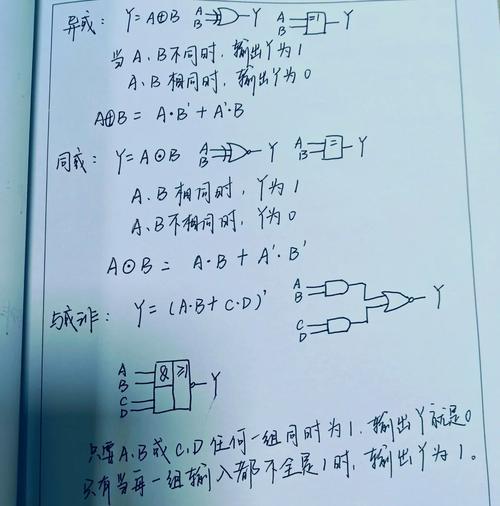 异或: Y=A⊕B A B Y A B =1 Y
当A、B不同时,输出Y为1
A、B相同时,输出Y为0
A⊕B = A·B' + A'·B
同或: Y=A⊙B A B Y A B = Y
A、B相同时,Y为1
A、B不相同时,Y为0
A⊙B = A·B + A'·B'
与或非: Y=(A·B+C·D)' A B C D Y
A B C D & ≥1 Y
只要A、B或C、D任何一组同时为1,输出Y就是0
只有当每一组输入都不全是1时,输出Y为1。